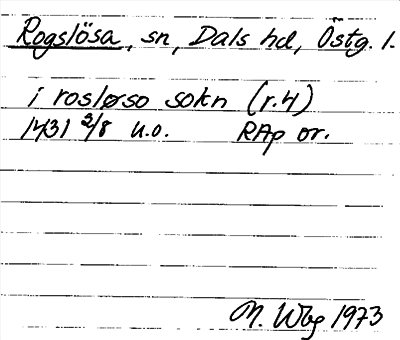 Rogslösa, sn, Dals hd, Östg. l.
i roslørso sokn (r.4)
1431 2/8 u.o. RAp or.
M. Wbg 1973